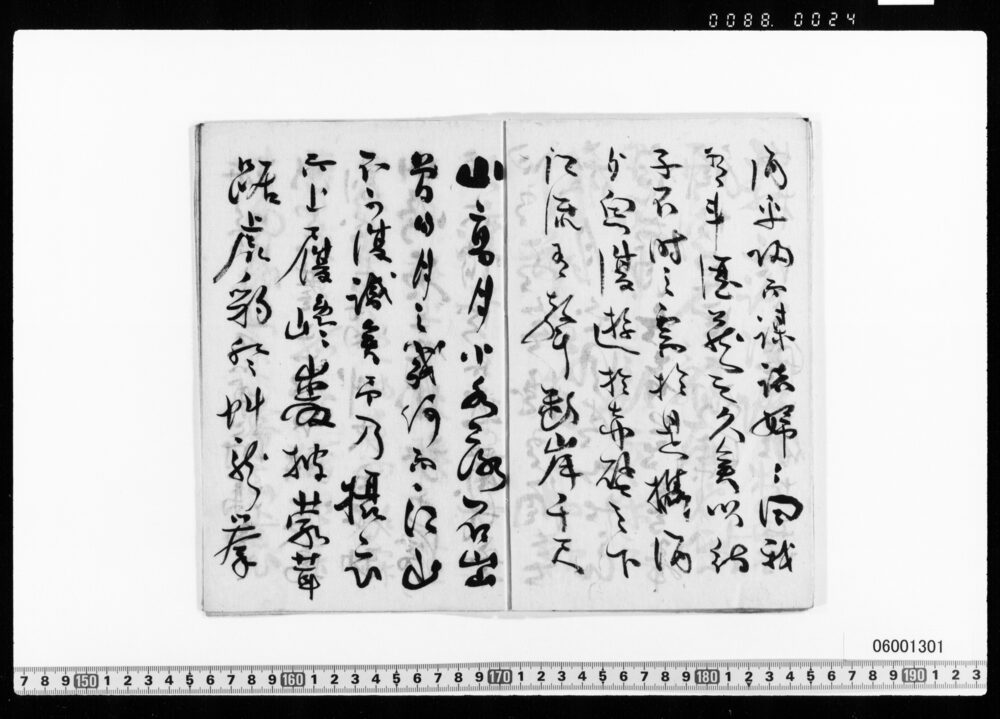 0088. 0024
酒乎歸而謀諸婦々曰我
有斗酒藏之久矣以待
子不時之需於是攜酒
与魚復遊於赤壁之下
江流有聲斷岸千尺
山高月小水落石出
曾日月之幾何而江山
不可復識矣予乃攝衣
而上履巉巖披蒙茸
踞虎豹登虬龍攀
06001301
7 8 9 150 1 2 3 4 5 6 7 8 9 160 1 2 3 4 5 6 7 8 9 170 1 2 3 4 5 6 7 8 9 180 1 2 3 4 5 6 7 8 9 190 1 2 3